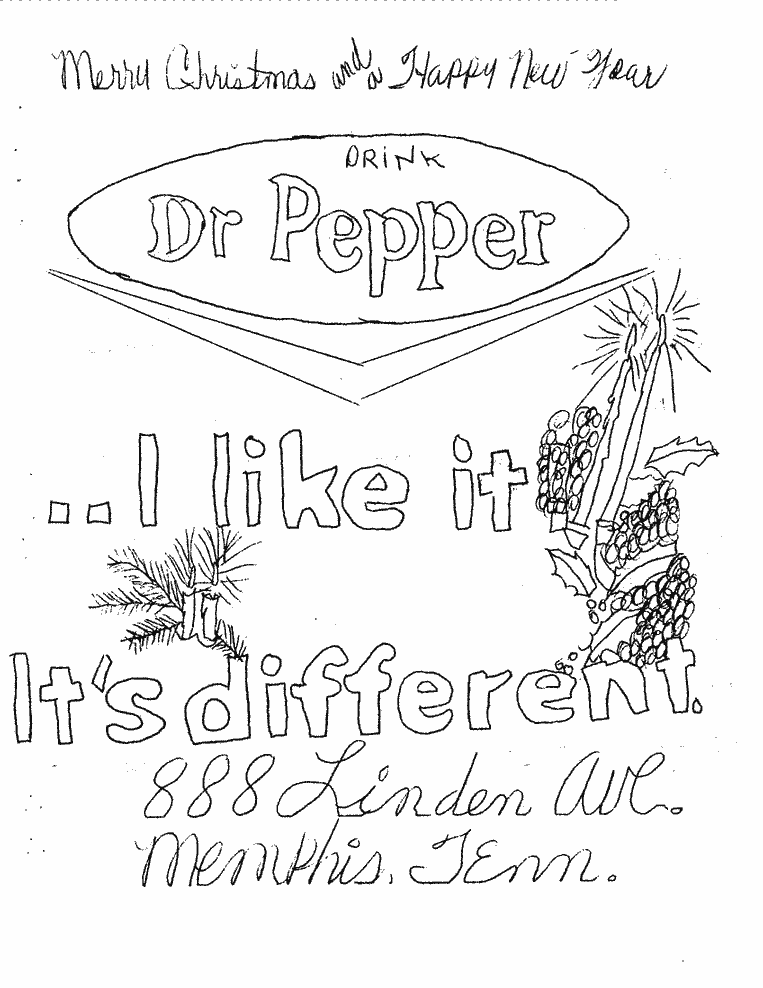 Merry Christmas and a Happy New Year
DRINK
Dr Pepper
..I like it
It's different.
888 Linden Ave.
Memphis, Tenn.